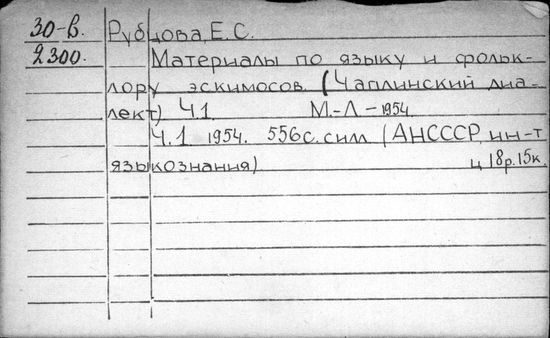 30-в. Рубцова, Е. С.
2300. Материалы по языку и фольк-
лору эскимосов. (Чаплинский диа-
лект) Ч.1 М.-Л - 1954.
Ч.1 1954. 556с. с илл (АНСССР, ин-т
языкознания) ц 18р. 15к.